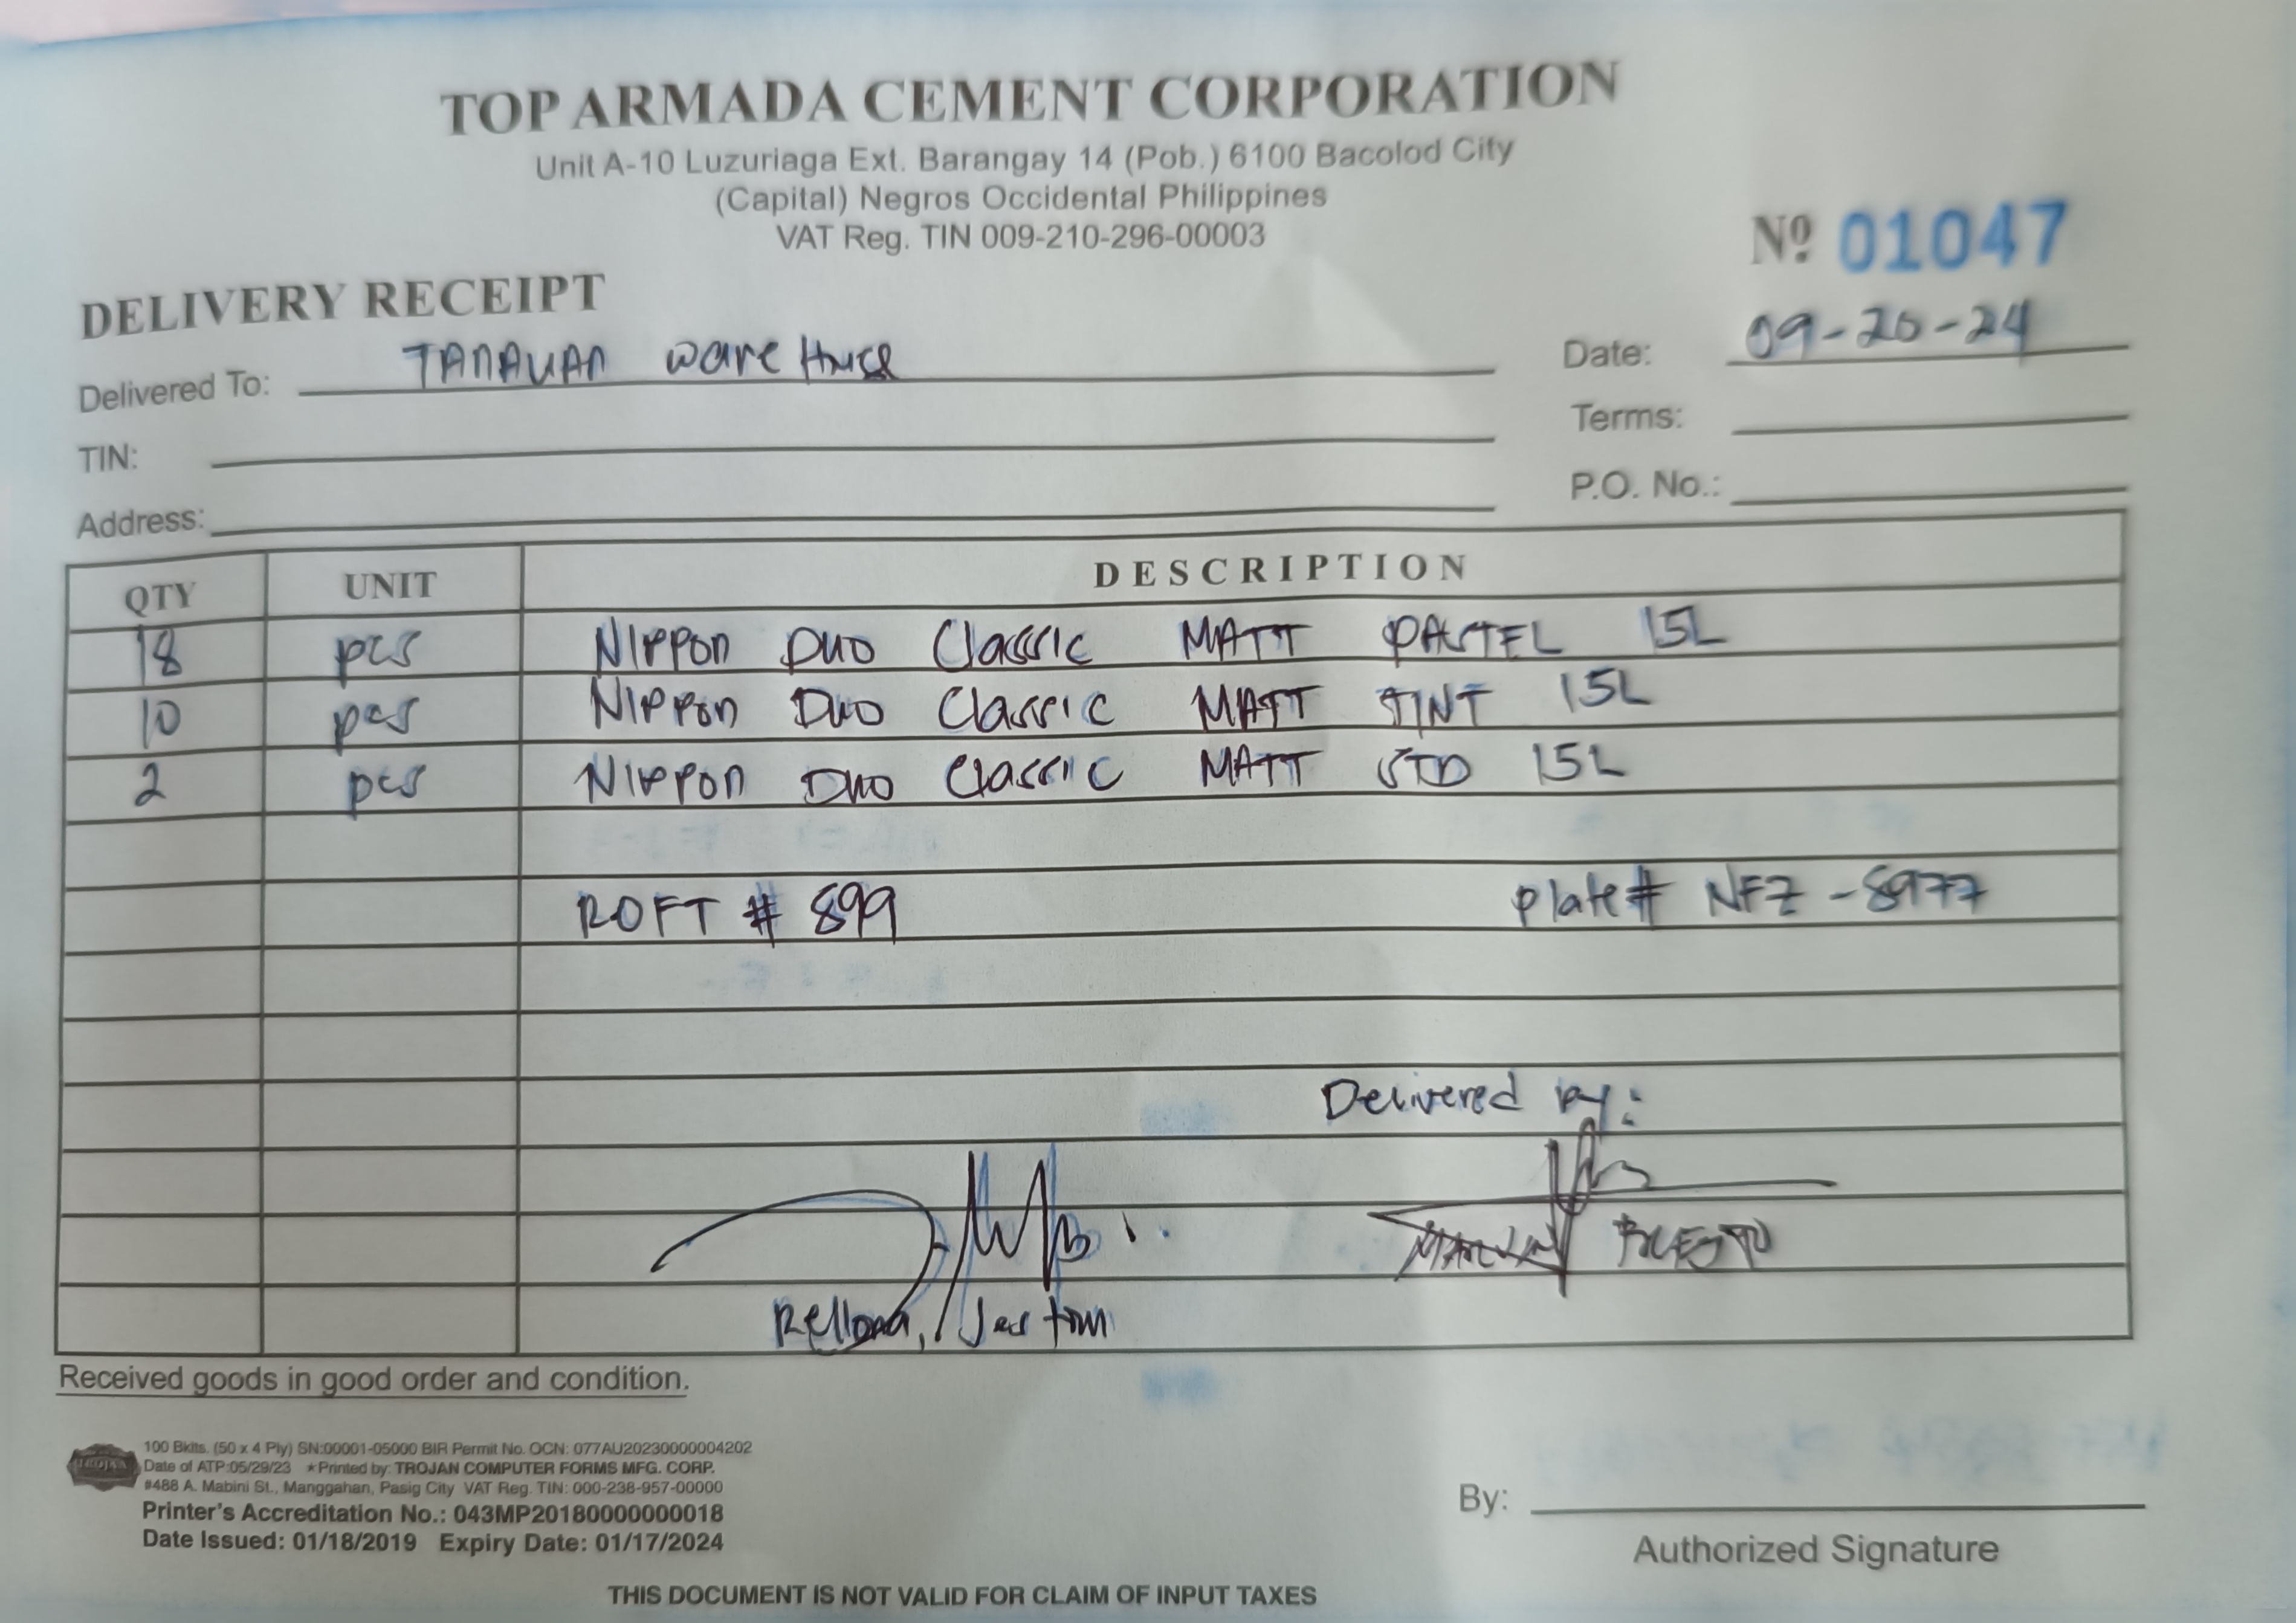 TOP ARMADA CEMENT CORPORATION
Unit A-10 Luzuriaga Ext. Barangay 14 (Pob.) 6100 Bacolod City
(Capital) Negros Occidental Philippines
VAT Reg. TIN 009-210-296-00003
Nº 01047
DELIVERY RECEIPT
Delivered To: TANAUAN Ware House
Date: 09-20-24
TIN:
Terms:
Address:
P.O. No.:
QTY UNIT DESCRIPTION
18 pcs Nippon Duo Classic MATT PASTEL 15L
10 pcs Nippon Duo Classic MATT TINT 15L
2 pcs Nippon Duo Classic MATT STD 15L
ROFT # 899 Plate# NFZ-8977
Delivered by:
Rellona,
Received goods in good order and condition.
TROJAN
100 Bklts. (50 x 4 Ply) SN:00001-05000 BIR Permit No. OCN: 077AU20230000004202
Date of ATP:05/29/23 ★Printed by: TROJAN COMPUTER FORMS MFG. CORP.
#488 A. Mabini St., Manggahan, Pasig City VAT Reg. TIN: 000-238-957-00000
Printer's Accreditation No.: 043MP20180000000018
Date Issued: 01/18/2019 Expiry Date: 01/17/2024
By:
Authorized Signature
THIS DOCUMENT IS NOT VALID FOR CLAIM OF INPUT TAXES